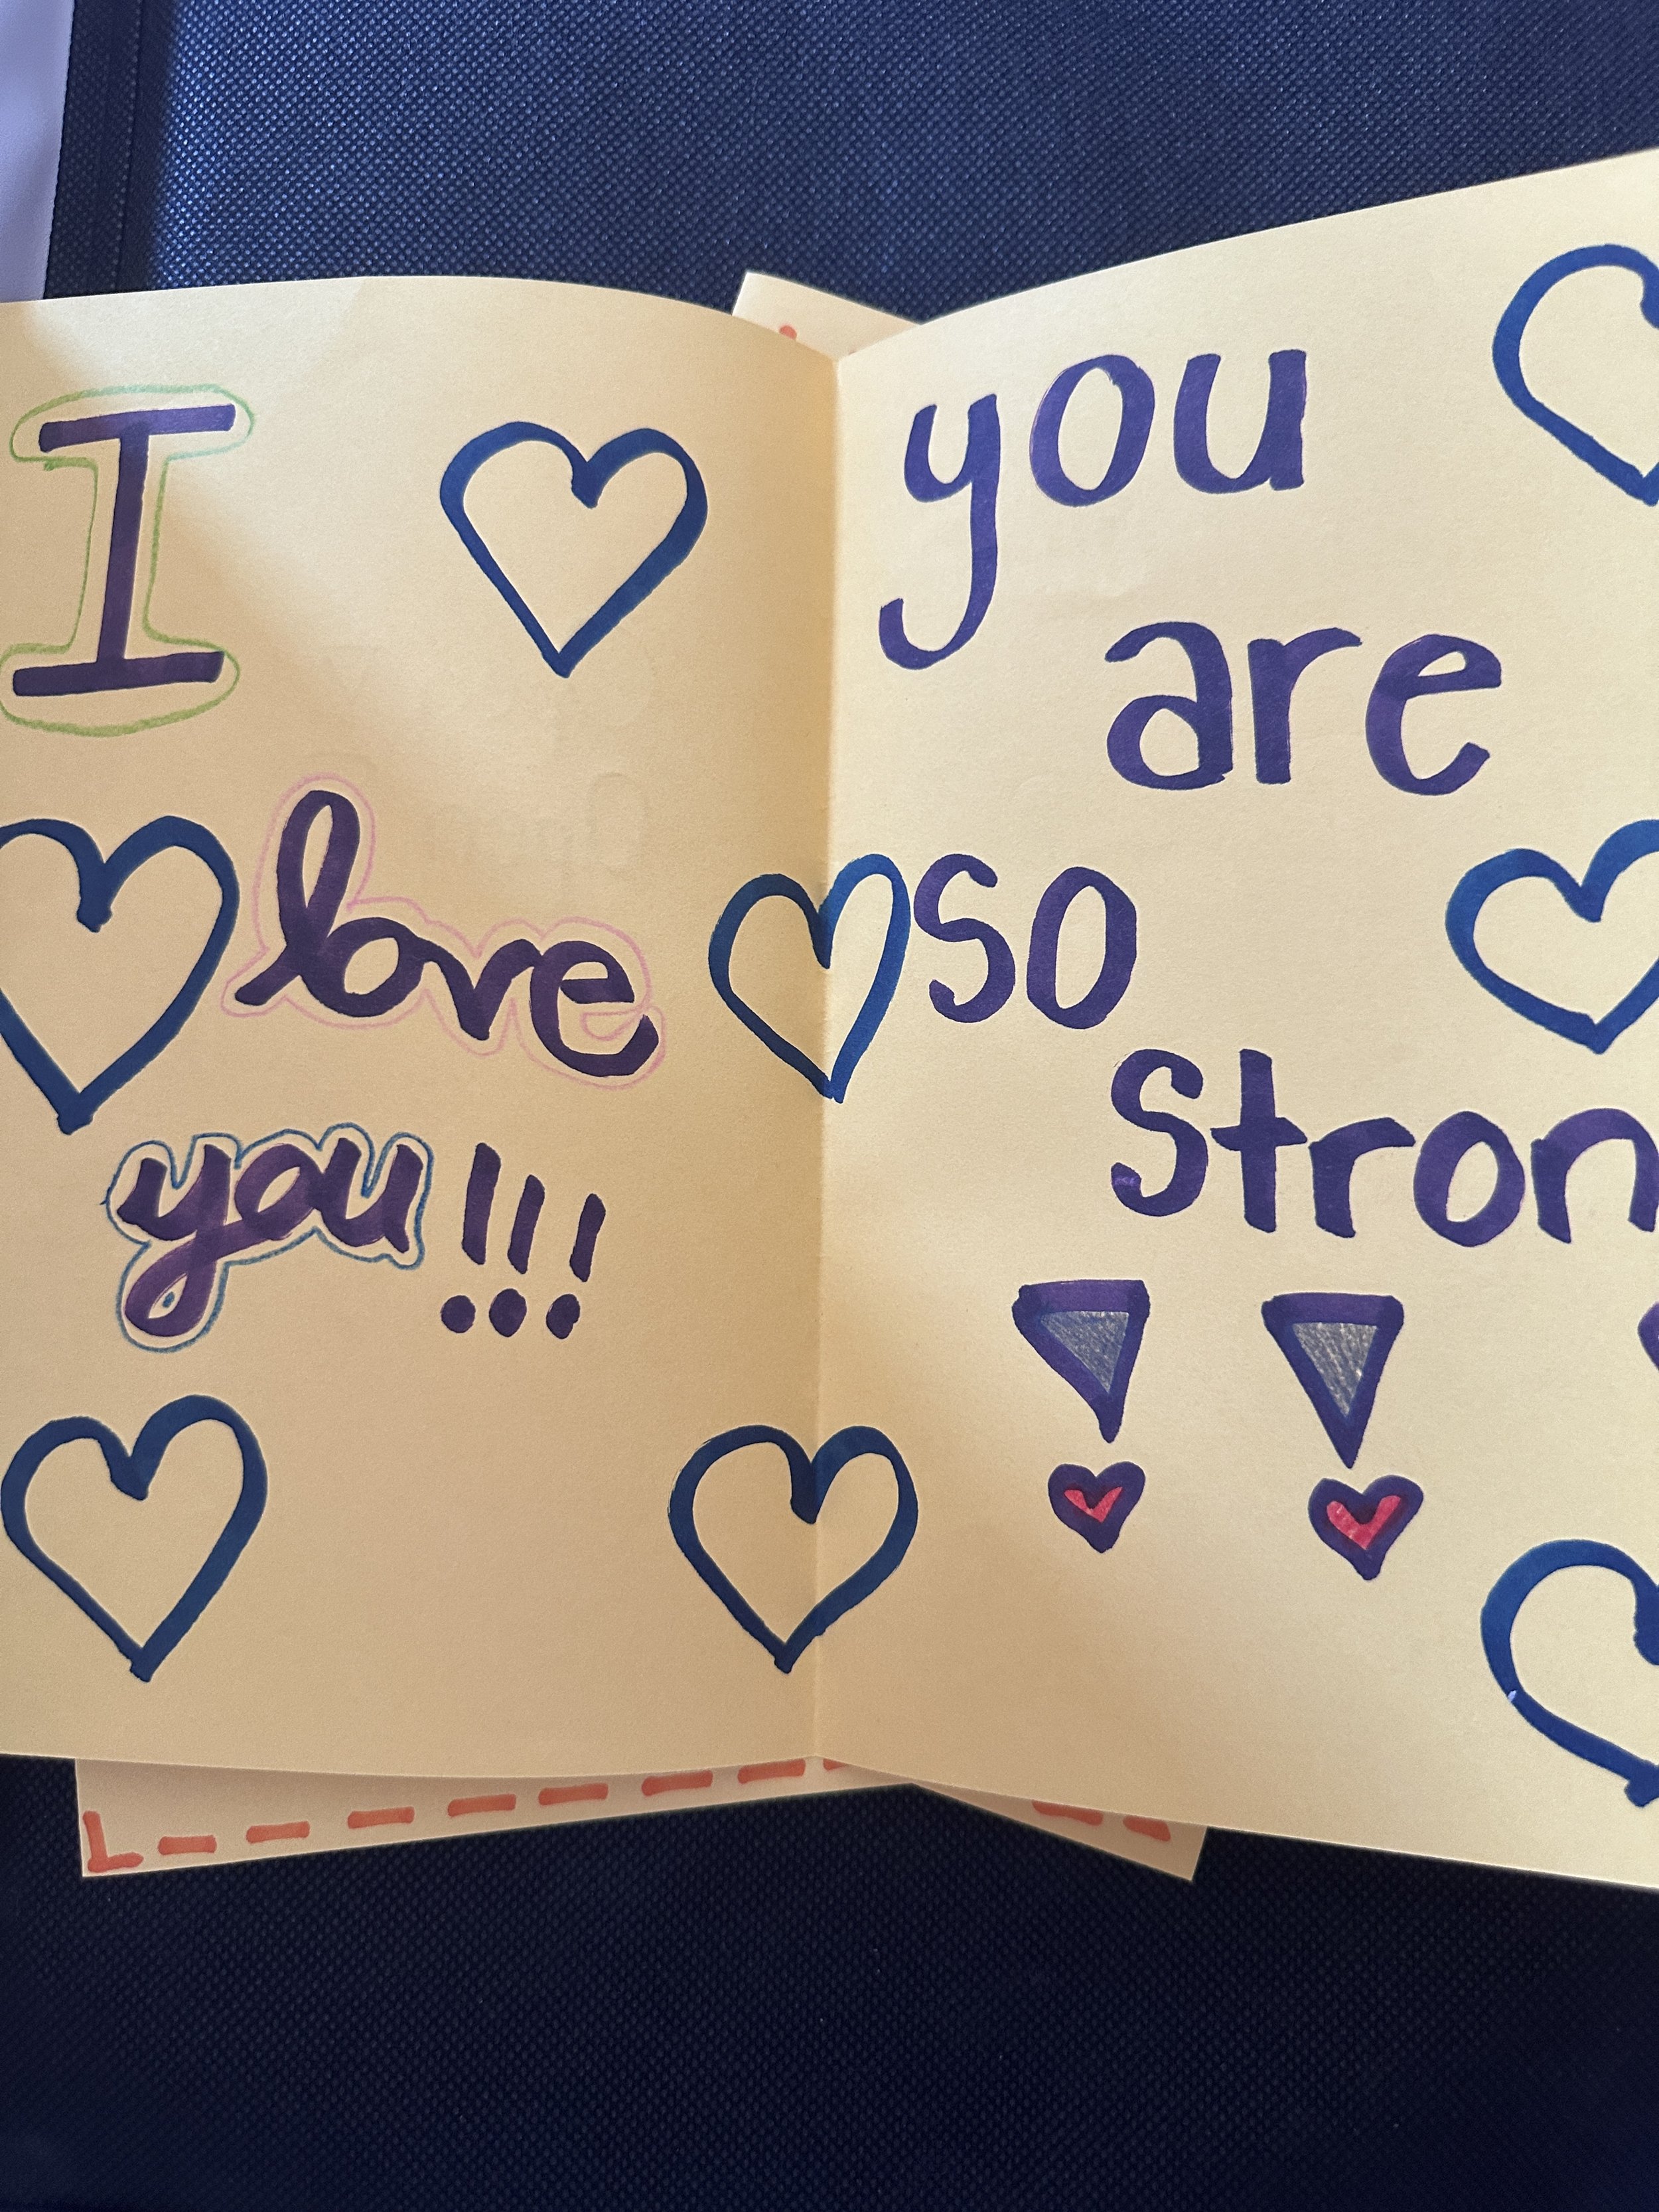 I
love
you!!!
you
are
so
Stron
!!